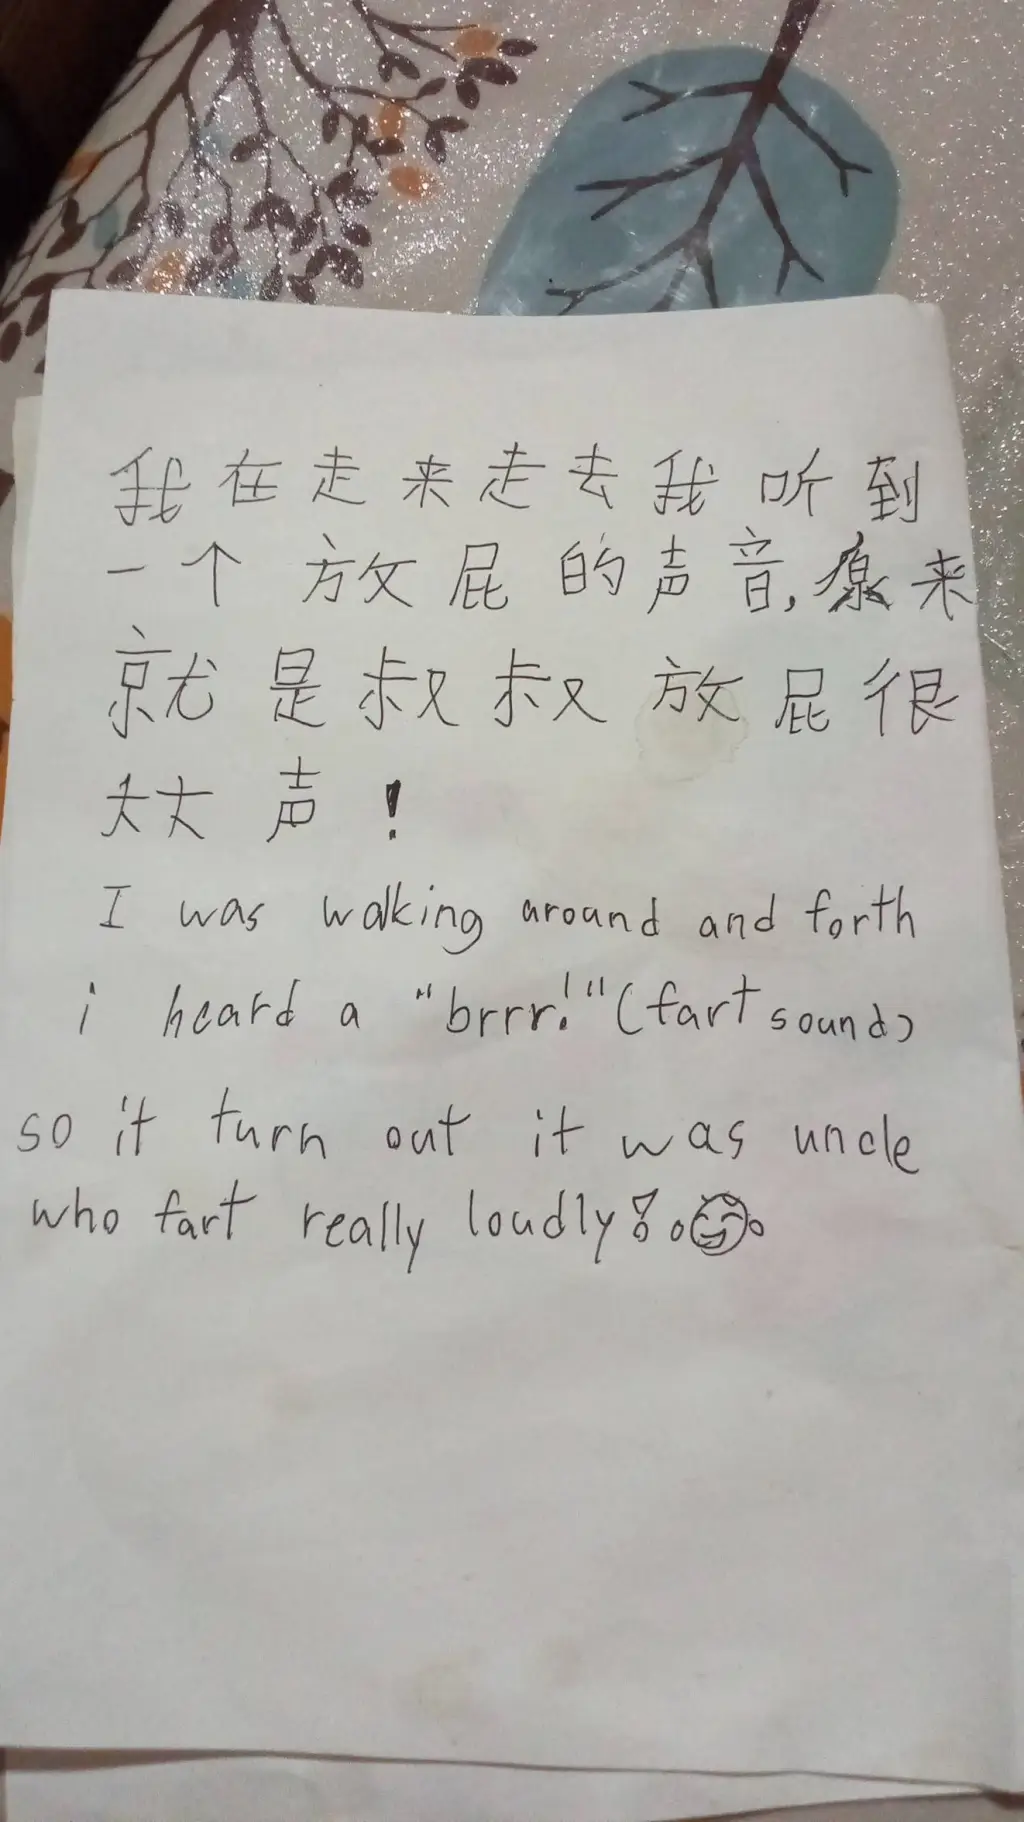 我在走来走去我听到
一个放屁的声音,原来
就是叔叔放屁很
大大声!
I was walking around and forth
i heard a "brrr!"(fart sound)
so it turn out it was uncle
who fart really loudly!